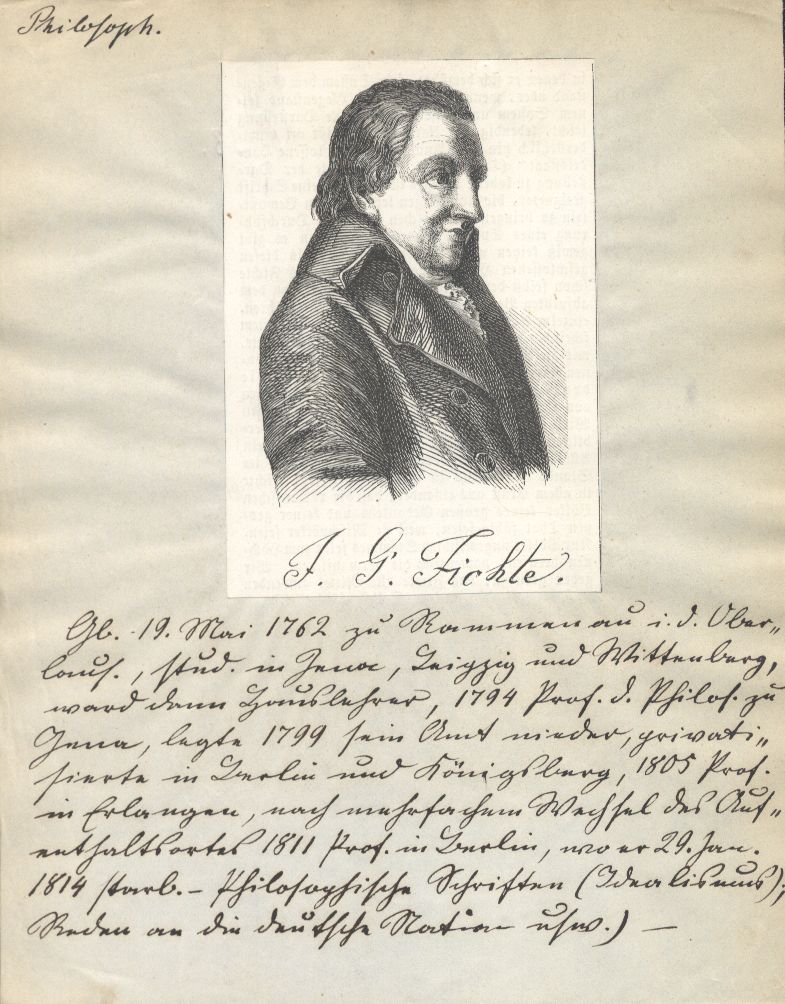 Philosoph.
J. G. Fichte.
Gb. 19. Mai 1762 zu Rammenau i. d. Ober„
laus., stud. in Jena, Leipzig und Wittenberg,
ward dann Hauslehrer, 1794 Prof. d. Philos. zu
Jena, legte 1799 sein Amt nieder, privati„
sierte in Berlin und Königsberg, 1805 Prof.
in Erlangen, nach mehrfachem Wechsel des Auf„
enthaltsortes 1811 Prof. in Berlin, wo er 29. Jan.
1814 starb. – Philosophische Schriften (Idealismus),
Reden an die deutsche Nation usw.) —